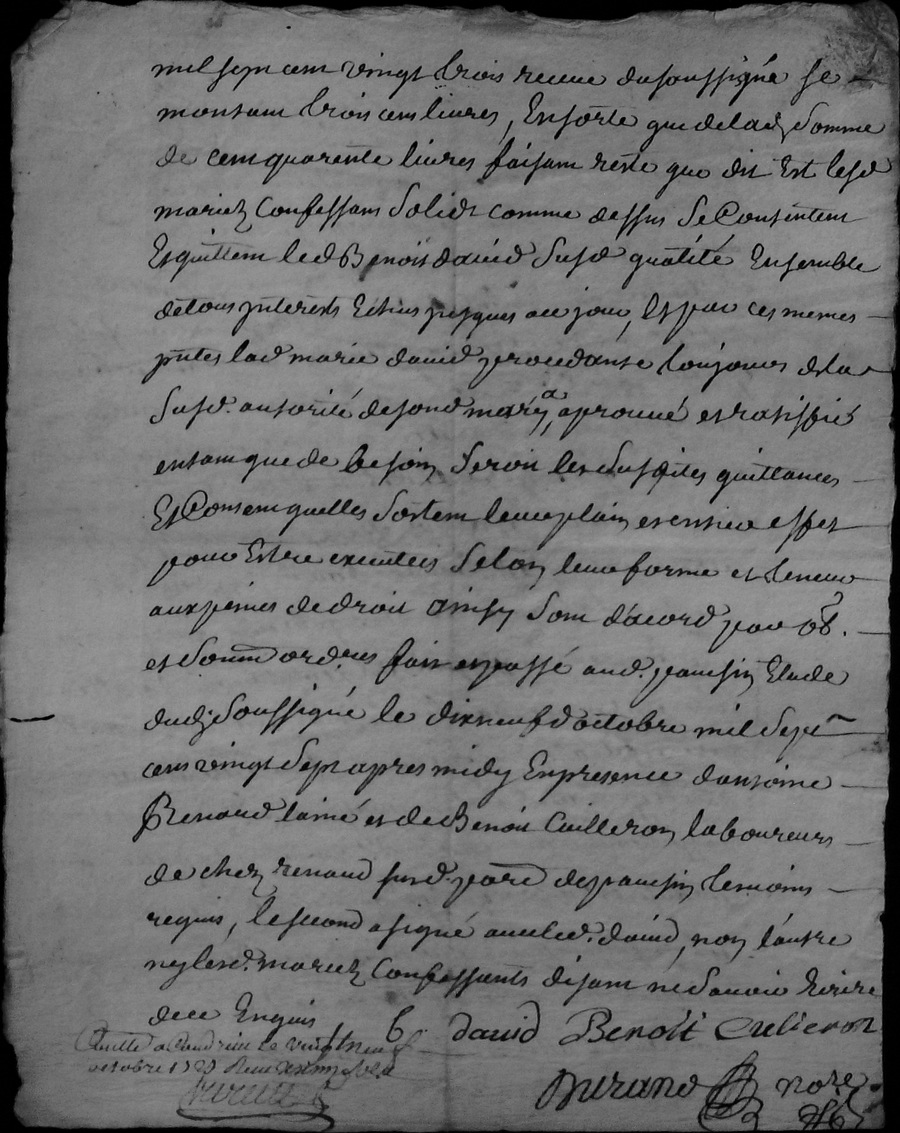 mil sept cent vingt trois receue du soussigné se
montant trois cens livres, Ensorte que de lad. Somme
de cent quarente livres faisant reste que dit Est lesd.
mariez Confessans Solidt comme dessus Se Contentent
Et quittent led Benoist david Susd. qualité Ensemble
de tous jnterests Echus jusques a ce jour, Et par ces memes
pntes lad marie david procedante toujours de la
Susd. autorité de sond mary, aprouvé et ratiffié
entant que de besoin Seroit les Susdites quittances
Et Consent quelles Sortent leur plain et entier effet
pour Estre executees Selon leur forme et teneur
aux peines de droit ainsy Sont d'acord par ob.
et Soum ordres fait et passé aud. pansin Etude
dud. Soussigné le dix neuf d'octobre mil Sept
cens vingt Sept apres midy En presence d'antoine
Renard lainé et de Benoit Cuilleron laboureurs
de chez renaud susd. parr de pansin temoins
requis, le second a signé avec led. david, non l'autre
ny lesd. mariez Confessants disant ne Savoir Ecrire
de ce Enquis
B. david Benoit Culieron
octobre 17
Durand nore.